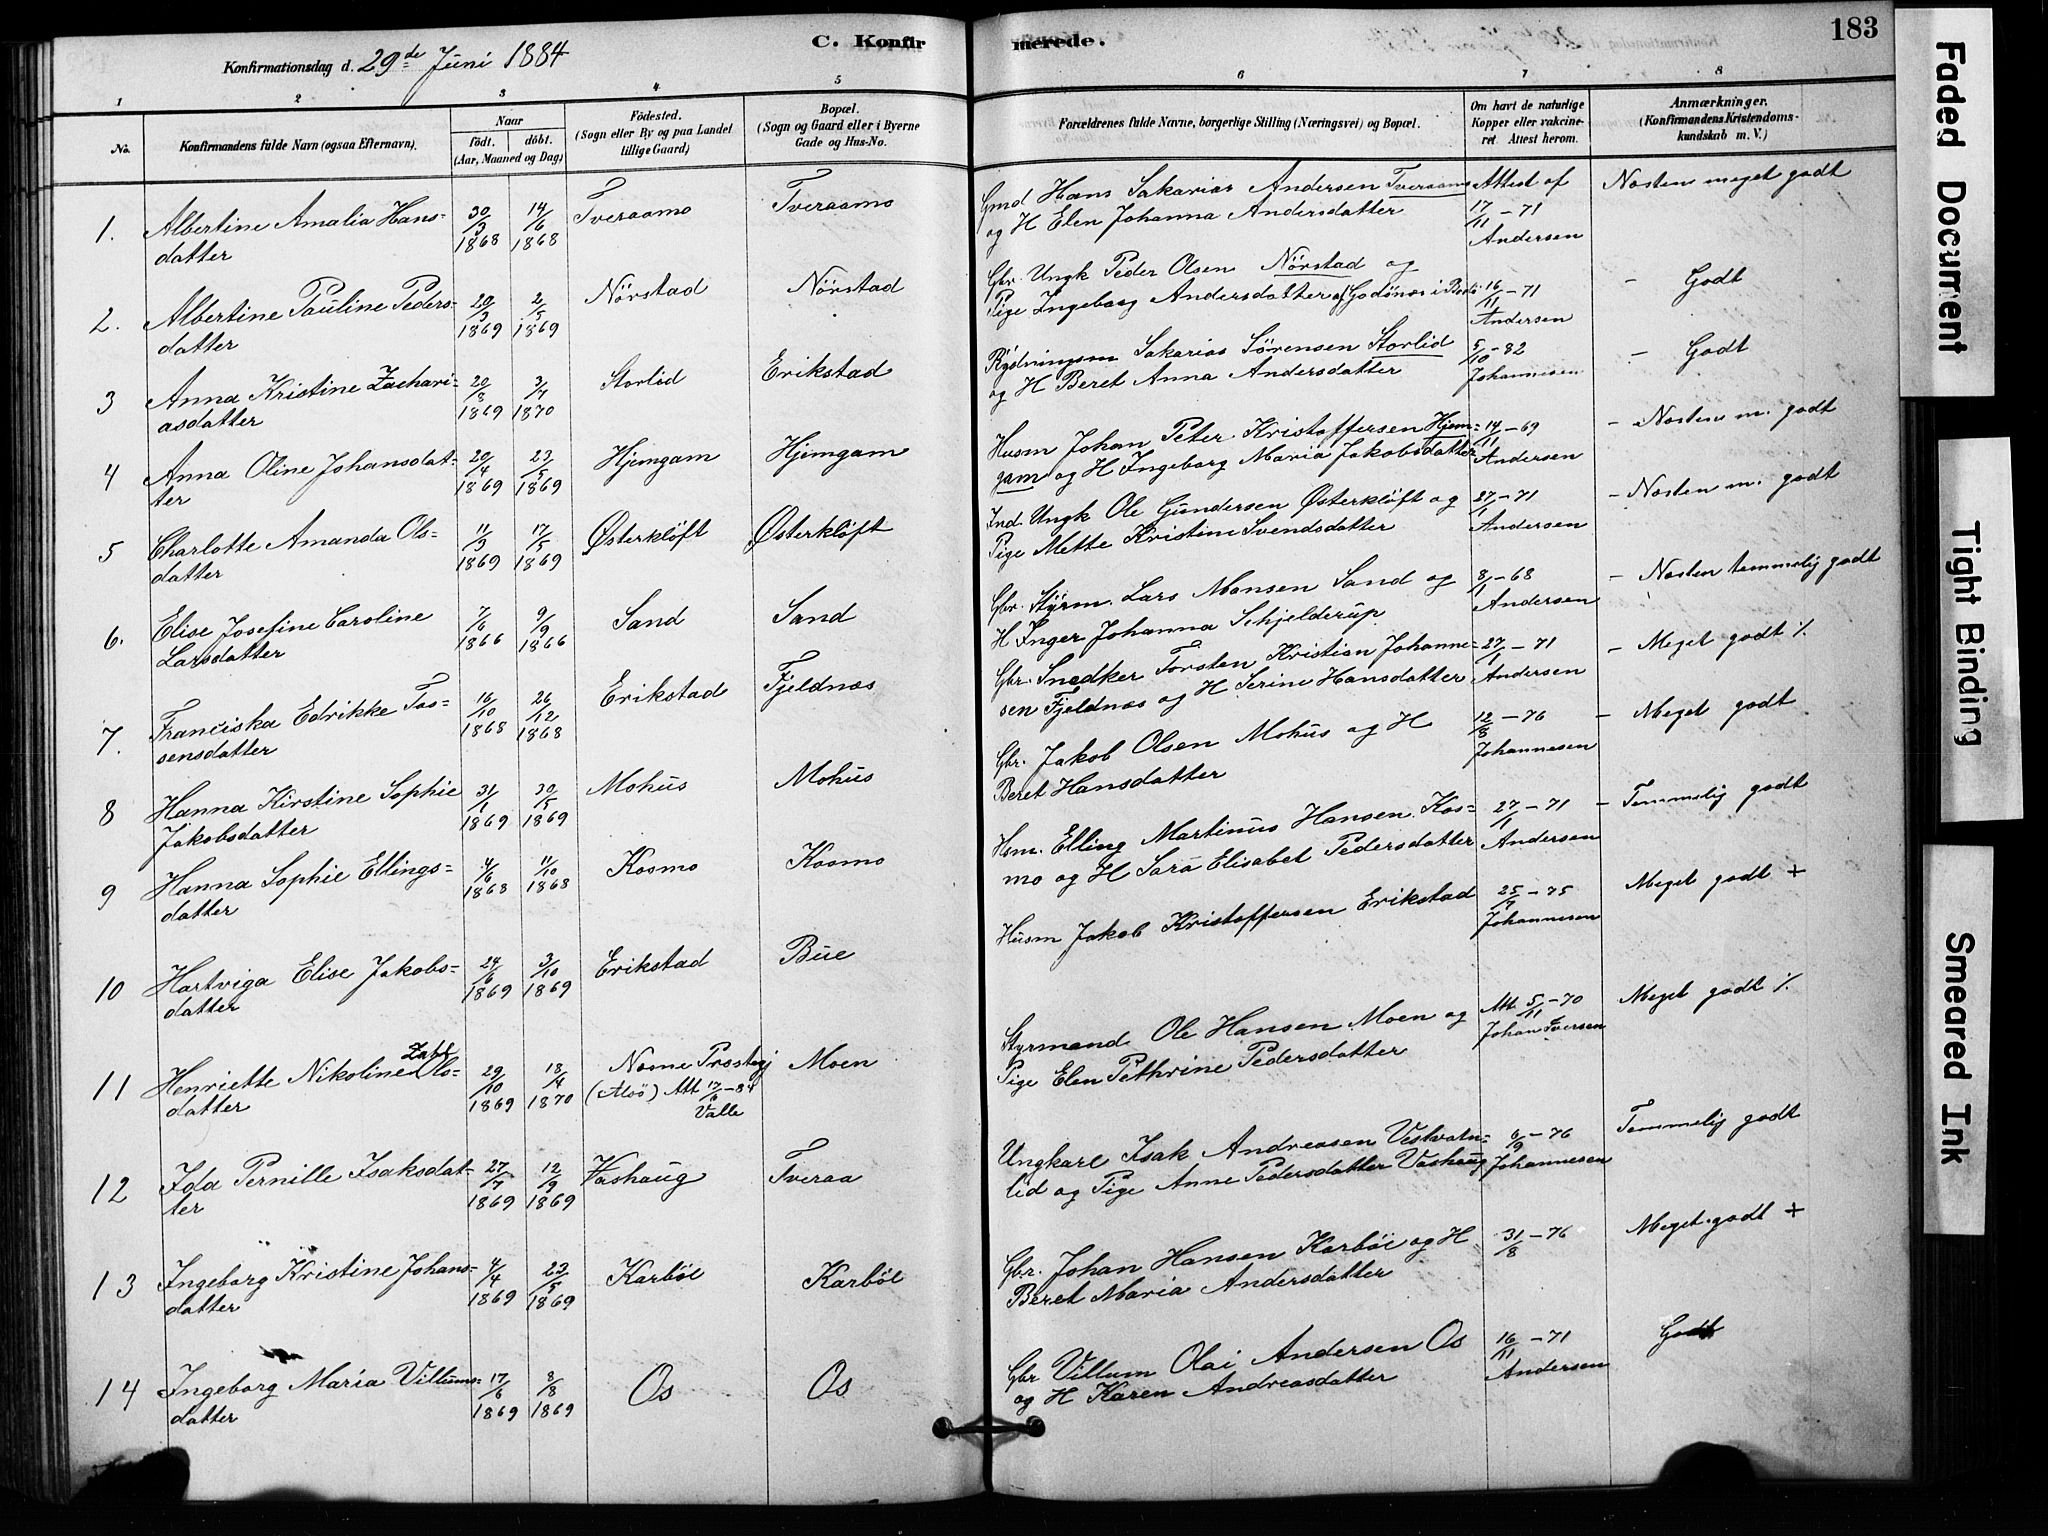 183
Konfirmationsdag d. 29de Juni 1884
C. Konfirmerede.
1 2 3 4 5 6 7 8
No.
Konfirmandens fulde Navn (ogsaa Efternavn).
Naar
födt. döbt.
(Aar, Maaned og Dag)
Födested.
(Sogn eller By og paa Landet
tillige Gaard)
Bopæl.
(Sogn og Gaard eller i Byerne
Gade og Hus-No.
Forældrenes fulde Navne, borgerlige Stilling (Næringsvei) og Bopæl.
Om havt de naturlige
Kopper eller vakcine-
ret. Attest herom.
Anmærkninger.
(Konfirmandens Kristendoms-
kundskab m. V.)
1. Albertine Amalia Hans- 30/3 14/6 Tveraamo Tveraamo Gmd Hans Sakarias Andersen Tveraamo Attest af Næsten meget godt
datter 1868 1868 og H Elen Johanna Andersdatter 17/11 – 71
Andersen
2. Albertine Pauline Peders- 20/3 2/5 Nörstad Nörstad Gbr. Ungk Peder Olsen Nörstad og 16/11 – 71 – Godt
datter 1869 1869 Pige Ingeborg Andersdatter af Godönæs i Bodö Andersen
3 Anna Kristine Zachari- 20/8 3/4 Storlid Erikstad Rydningsm Sakarias Sörensen Storlid 5/10 – 82 – Godt
asdatter 1869 1870 og H Beret Anna Andersdatter Johannesen
4 Anna Oline Johansdat- 20/4 23/5 Hjemgam Hjemgam Husm Johan Peter Kristoffersen Hjem- 14/11 – 69 – Næsten m. godt
ter 1869 1869 gam og H Ingeborg Maria Jakobsdatter Andersen
5 Charlotte Amanda Ols- 11/3 17/5 Østerklöft Østerklöft Ind. Ungk Ole Gundersen Østerklöft og 27/1 – 71 – Næsten m. godt
datter 1869 1869 Pige Mette Kristine Svendsdatter Andersen
6. Elise Josefine Caroline 7/6 9/9 Sand Sand Gbr. Styrm. Lars Monsen Sand og 8/1 – 68 – Næsten temmelig godt
Larsdatter 1866 1866 H Inger Johanna Schjelderup Andersen
7. Franciska Edrikke Tos- 16/10 26/12 Erikstad Fjeldnæs Gbr. Snedker Torsten Kristian Johanne- 27/1 – 71 – Meget godt %
sensdatter 1868 1868 sen Fjeldnæs og H Serine Hansdatter Andersen
8 Hanna Kirstine Sophie 31/1 30/5 Mohus Mohus Gbr. Jakob Olsen Mohus og H 12/8 – 76 – Meget godt
Jakobsdatter 1869 1869 Beret Hansdatter Johannesen
9 Hanna Sophie Ellings- 4/6 11/10 Kosmo Kosmo Hsm. Elling Martinus Hansen Kos- 27/1 – 71 – Temmelig godt
datter 1868 1868 mo og H Sara Elisabet Pedersdatter Andersen
10 Hartviga Elise Jakobs- 24/6 3/10 Erikstad Bue Husm Jakob Kristoffersen Erikstad 25/7 – 75 Meget godt +
datter 1869 1869 Johannesen
11 Henriette Nikoline Zahl Ols- 29/10 18/4 Nesne Præstegj Moen Styrmand Ole Hansen Moen og Att. 5/11 – 70 Meget godt %
datter 1869 1870 (Alsö) Att 17/6 – 84 Pige Elen Pethrine Pedersdatter Johan Iversen
Valle
12 Ida Pernille Isaksdat- 27/7 12/9 Vashaug Tveraa Ungkarl Isak Andreasen Vestvatn- 8/9 – 76 Temmelig godt
ter 1869 1869 lid og Pige Anne Pedersdatter Vashaug Johannesen
13 Ingeborg Kristine Johans- 4/4 23/5 Karböl Karböl Gbr. Johan Hansen Karböl og H 31/8 – 76 Meget godt +
datter 1869 1869 Beret Maria Andersdatter
14 Ingeborg Maria Villums- 17/6 8/8 Os Os Gbr Villum Olai Andersen Os 16/11 – 71 Godt
datter 1869 1869 og H Karen Andreasdatter Andersen
Faded Document
Tight Binding
Smeared Ink